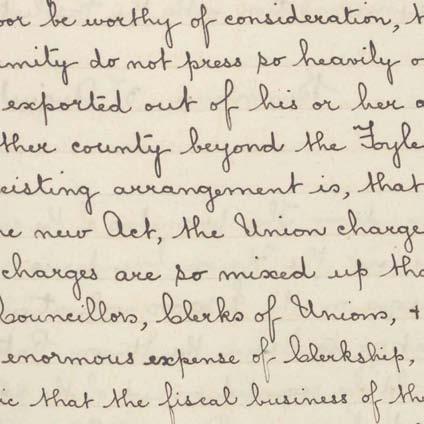 oor be worthy of consideration, t
mity do not press so heavily o
exported out of his or her o
ther county beyond the Foyle
existing arrangement is, that
e new Act, the Union charge
charges are so mixed up tha
Councillors, Clerks of Unions, +
enormous expense of Clerkship,
ic that the fiscal business of the